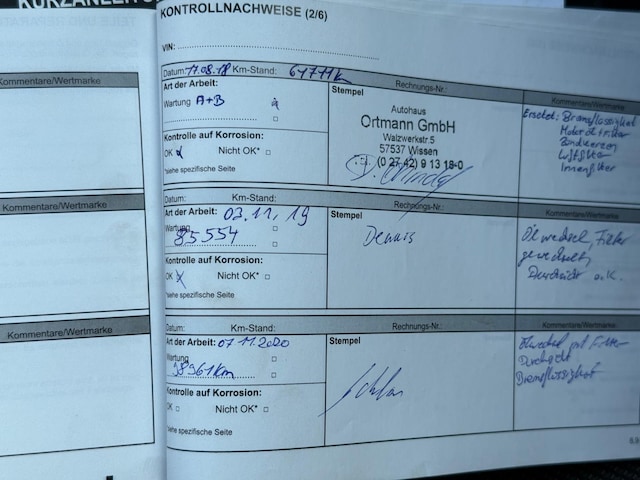 KURZANLEIT
KONTROLLNACHWEISE (2/6)
VIN:
Kommentare/Wertmarke
Datum: 17.08.18 Km-Stand: 64711km
Rechnungs-Nr.:
Kommentare/Wertmarke
Art der Arbeit:
Wartung A+B
Kontrolle auf Korrosion:
OK Nicht OK*
*siehe spezifische Seite
Stempel
Autohaus
Ortmann GmbH
Walzwerkstr.5
57537 Wissen
(0 27 42) 9 13 18-0
Ersetzt: Bremsflüssigkeit
Motoröl+Filter
Zündkerzen
Luftfilter
Innenfilter
Kommentare/Wertmarke
Datum: Km-Stand:
Rechnungs-Nr.:
Kommentare/Wertmarke
Art der Arbeit: 03.11.19
Wartung
85554
Kontrolle auf Korrosion:
OK Nicht OK*
*siehe spezifische Seite
Stempel
Dennis
Ölwechsel, Filter
gewechselt,
Durchsicht o.K.
Kommentare/Wertmarke
Datum: Km-Stand:
Rechnungs-Nr.:
Kommentare/Wertmarke
Art der Arbeit: 07.11.2020
Wartung
98961km
Kontrolle auf Korrosion:
OK Nicht OK*
*siehe spezifische Seite
Stempel
Ölwechsel mit Filter
Durchsicht
Bremsflüssigkeit